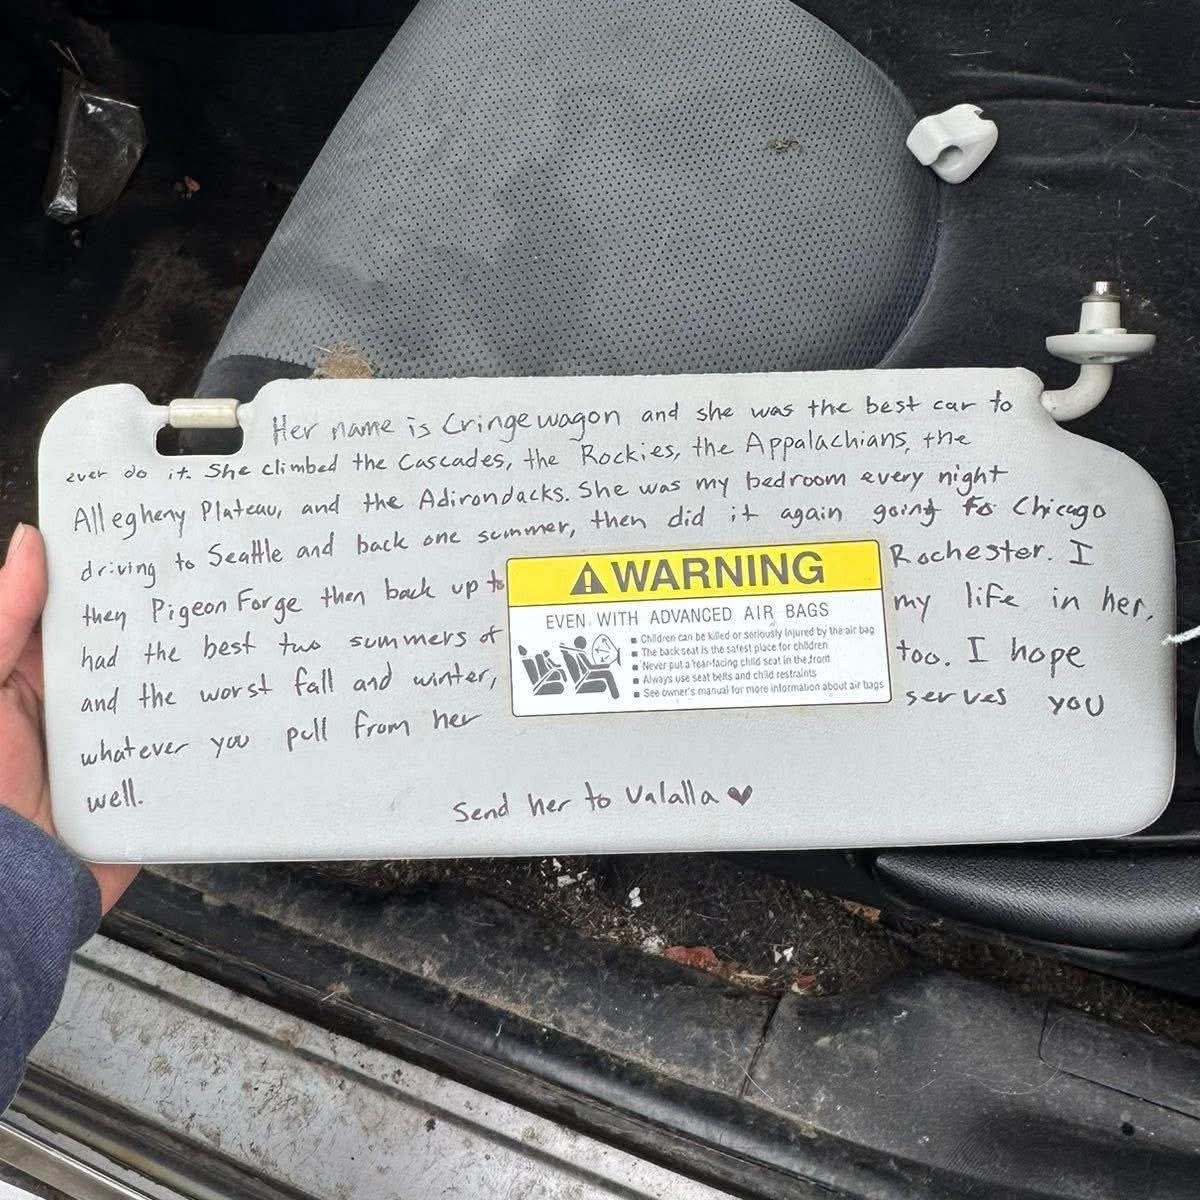 Her name is Cringewagon and she was the best car to
ever do it. She climbed the Cascades, the Rockies, the Appalachians, the
Allegheny Plateau, and the Adirondacks. She was my bedroom every night
driving to Seattle and back one summer, then did it again going to Chicago
then Pigeon Forge then back up to Rochester. I
had the best two summers of my life in her,
and the worst fall and winter, too. I hope
whatever you pull from her serves you
well.
Send her to Valalla ♥
⚠ WARNING
EVEN WITH ADVANCED AIR BAGS
■ Children can be killed or seriously injured by the air bag
■ The back seat is the safest place for children
■ Never put a rear-facing child seat in the front
■ Always use seat belts and child restraints
■ See owner's manual for more information about air bags